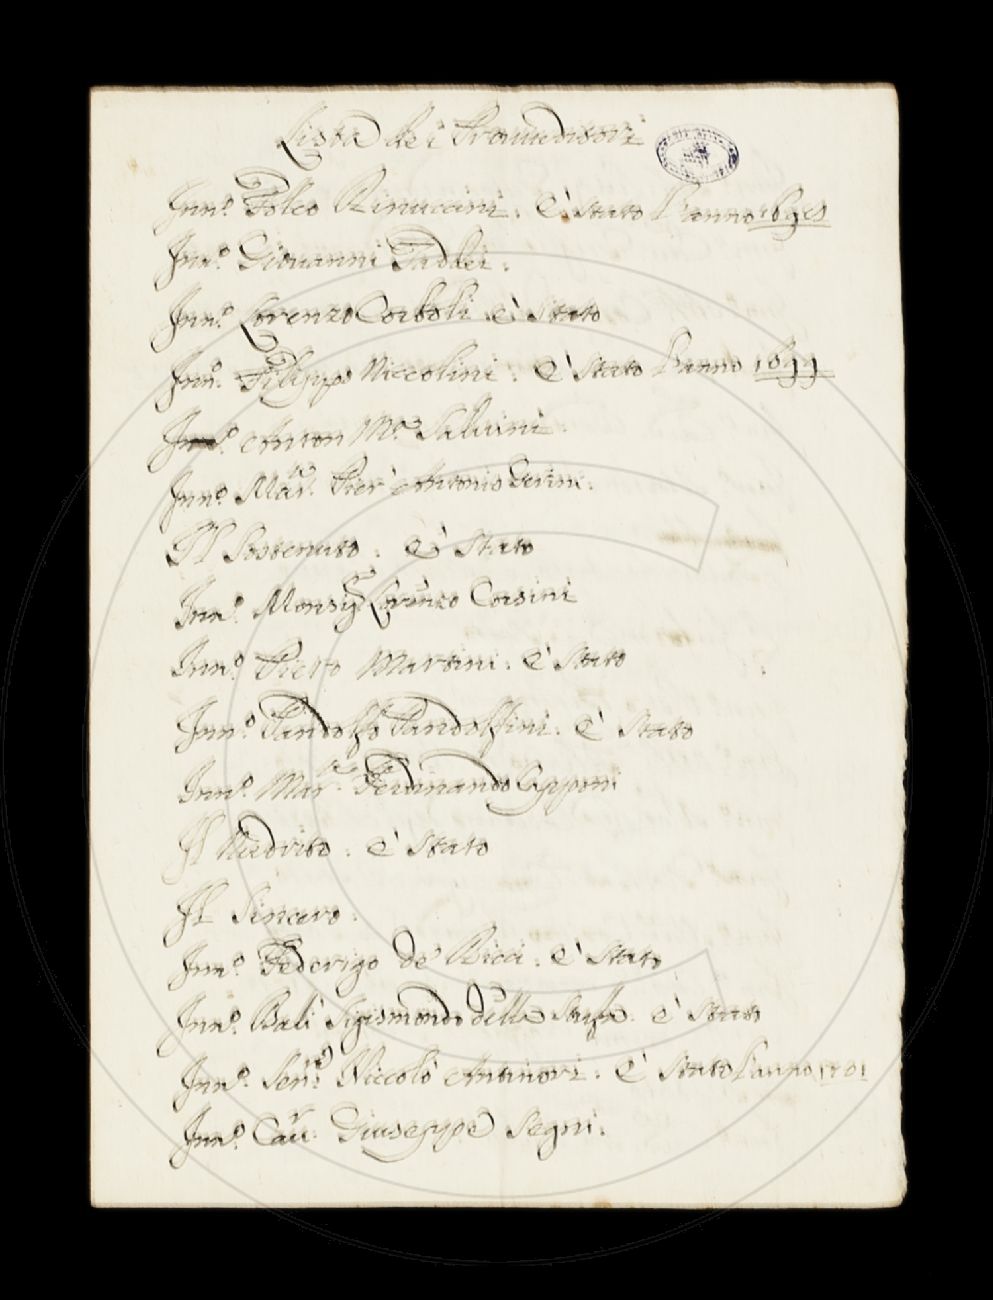 Lista dei Proveditori
Innº. Folco Rinuccini. è stato l'anno 1698
Innº. Giovanni Taddei.
Innº. Lorenzo Corboli è stato
Innº. Filippo Niccolini. è stato l'anno 1699
Innº. Anton Mª. Salvini
Innº. Marse. Pier Antonio Gerini.
Il Sostenuto. è stato
Innº. Monsigr. Lorenzo Corsini
Innº. Piero Martini. è stato
Innº. Pandolfo Pandolfini. è stato
Innº. Marse. Ferdinando Capponi
Il Nudrito. è stato
Il Sincero.
Innº. Federigo de' Ricci. è stato
Innº. Balì Sigismondo della Stufa. è stato
Innº. Senre. Niccolò Antinori. è stato l'anno 1701
Innº. Cavr. Giuseppe Segni.